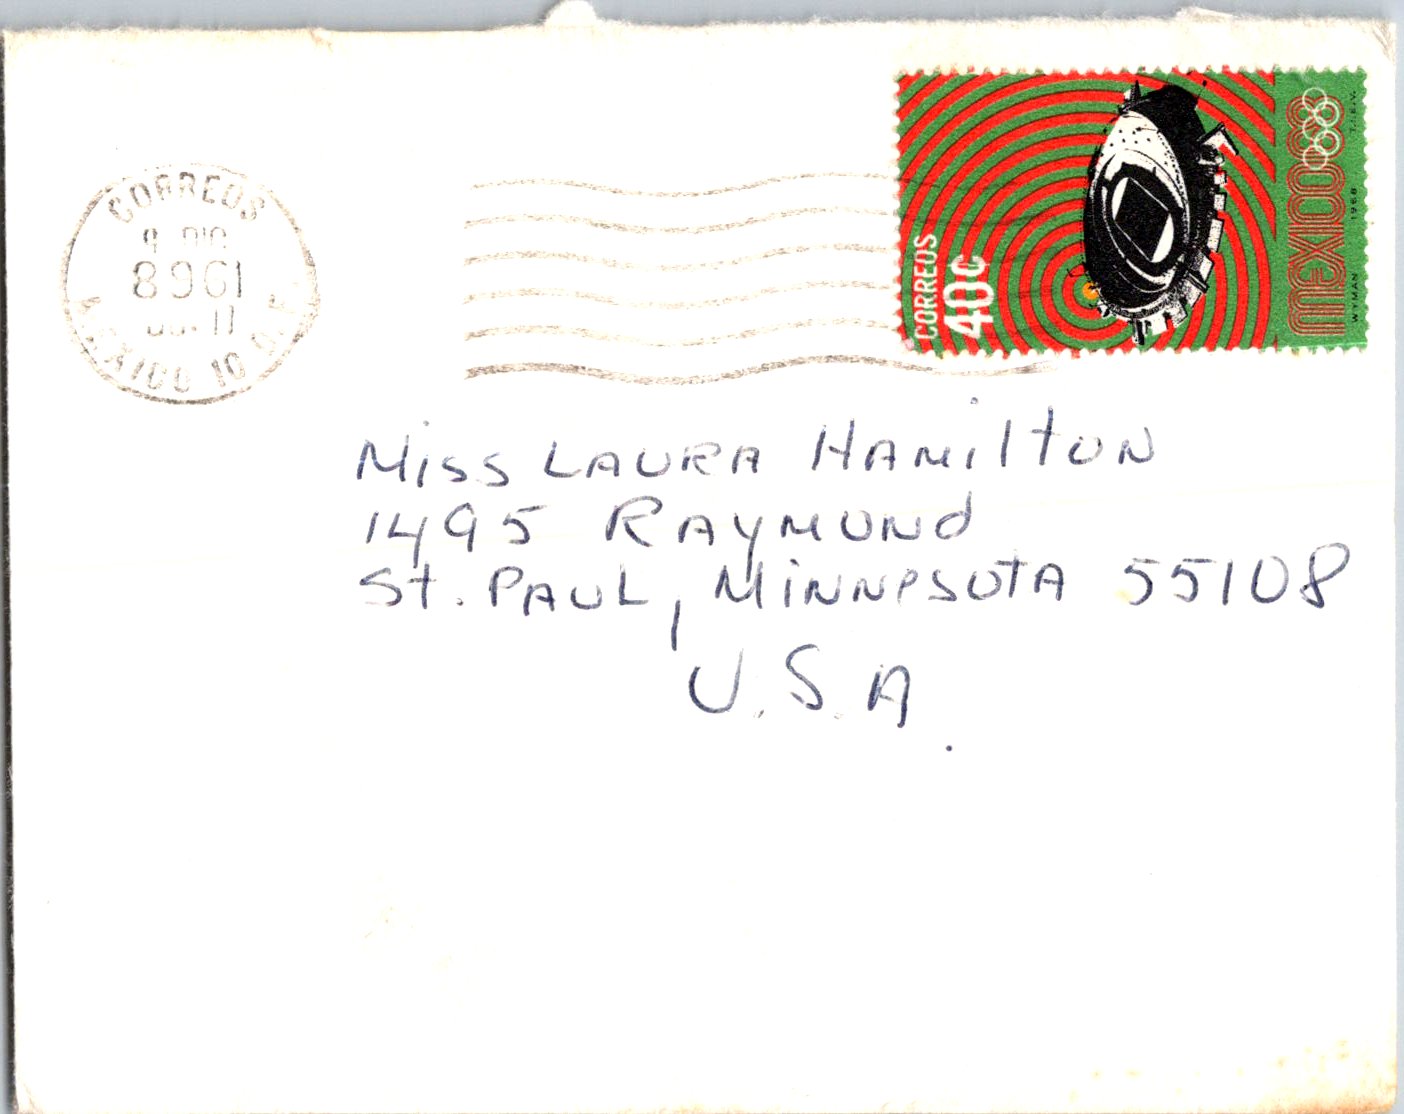 CORREOS
8961
MEXICO 10 D.F.
CORREOS
40¢
MEXICO68
WYMAN 1968 T.I.E.V.
Miss LAURA HAMilTON
1495 RAYMOND
St. PAUL, MINNESOTA 55108
U.S.A.